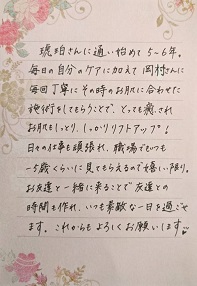 琥珀さんに通い始めて5~6年。
毎日の自分のケアに加えて岡村さんに
毎回丁寧にその時のお肌に合わせた
施術をしてもらうことで、とっても癒され
お肌もしっとり、しっかりリフトアップ!
日々の仕事も頑張れ、職場でもいつも
-5歳くらいに見てもらえるので嬉しい限り。
お友達と一緒に来ることで友達との
時間も作れ、いつも素敵な一日を過ごせ
ます。これからもよろしくお願いします♡